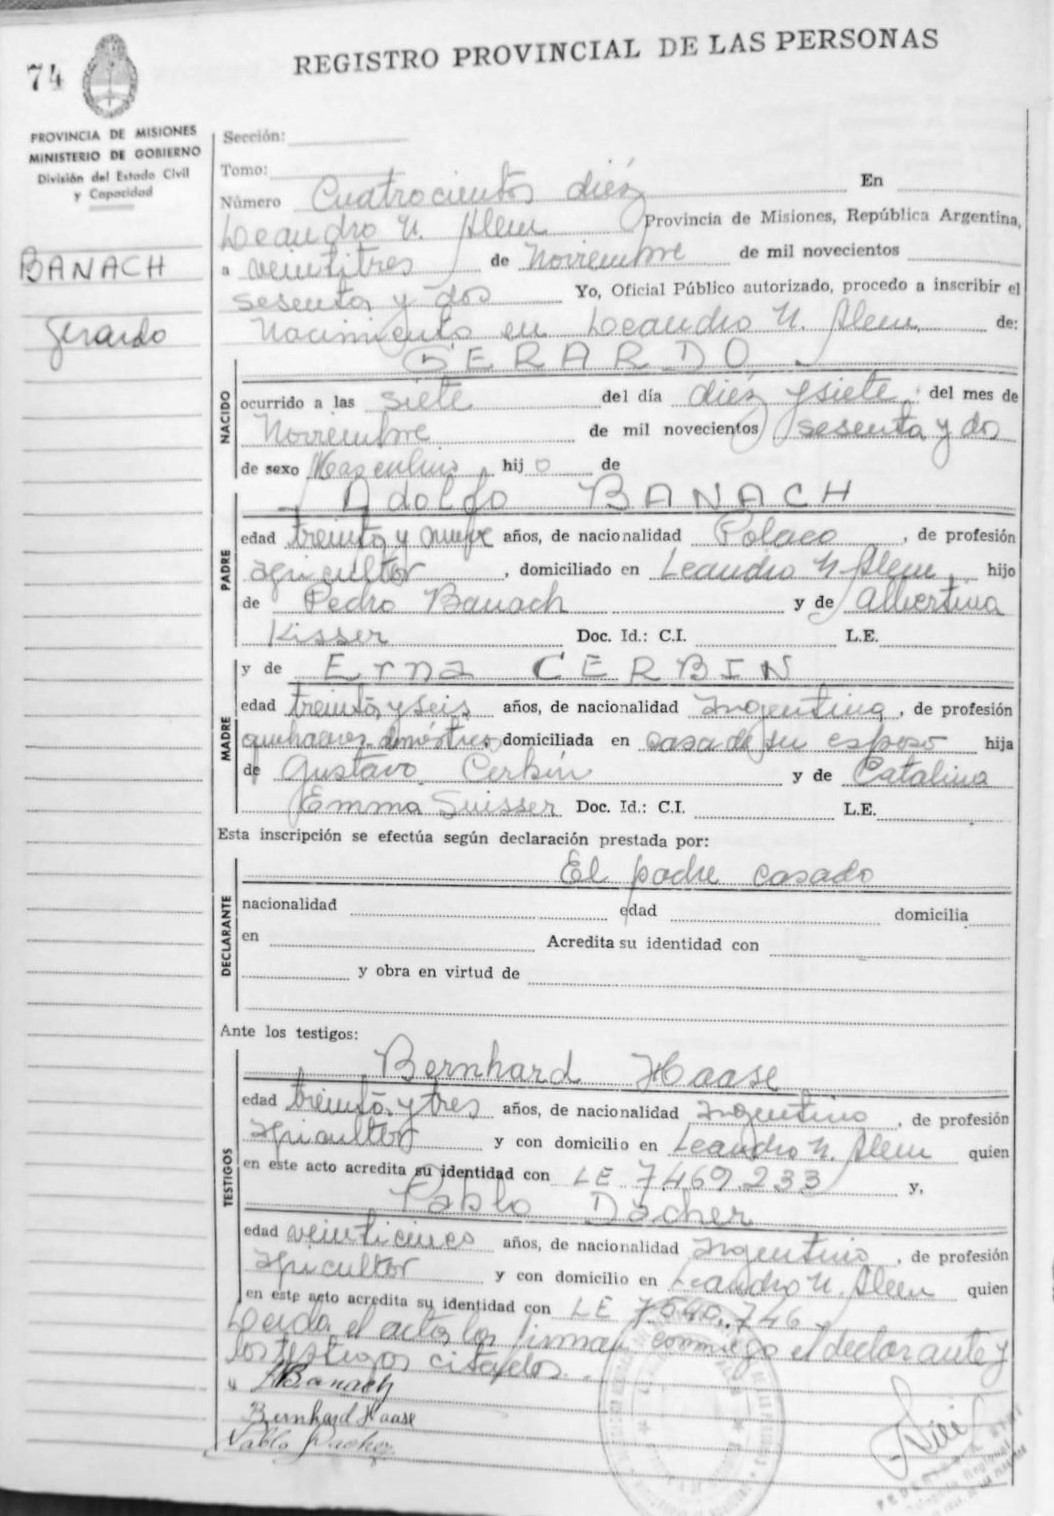 REGISTRO PROVINCIAL DE LAS PERSONAS
74
PROVINCIA DE MISIONES
MINISTERIO DE GOBIERNO
División del Estado Civil
y Capacidad
BANACH
Gerardo
Sección:
Tomo:
Número Cuatrocientos diéz En
Leandro N. Alem Provincia de Misiones, República Argentina,
a veintitres de Noviembre de mil novecientos
sesenta y dos Yo, Oficial Público autorizado, procedo a inscribir el
Nacimiento en Leandro N. Alem de:
GERARDO
NACIDO
ocurrido a las siete del día diéz y siete del mes de
Noviembre de mil novecientos sesenta y dos
de sexo Masculino, hijo de
Adolfo BANACH
PADRE
edad treinta y nueve años, de nacionalidad Polaco, de profesión
agricultor, domiciliado en Leandro N. Alem, hijo
de Pedro Banach y de Albertina
Kisser Doc. Id.: C.I. L.E.
y de Erna CERBIN
MADRE
edad treinta y seis años, de nacionalidad Argentina, de profesión
quehaceres domésticos domiciliada en casa de su esposo hija
de Gustavo Cerbin y de Catalina
Emma Suisser Doc. Id.: C.I. L.E.
Esta inscripción se efectúa según declaración prestada por:
El padre casado
DECLARANTE
nacionalidad edad domicilia
en Acredita su identidad con
y obra en virtud de
Ante los testigos:
Bernhard Haase
TESTIGOS
edad treinta y tres años, de nacionalidad Argentino, de profesión
agricultor y con domicilio en Leandro N. Alem quien
en este acto acredita su identidad con LE 7.469.233 y,
Pablo Dacher
edad veinticinco años, de nacionalidad Argentino, de profesión
agricultor y con domicilio en Leandro N. Alem quien
en este acto acredita su identidad con LE 746
Leida el acta la firman conmigo el declarante y
los testigos citados.
Banach
Bernhard Haase
Pablo Dacher